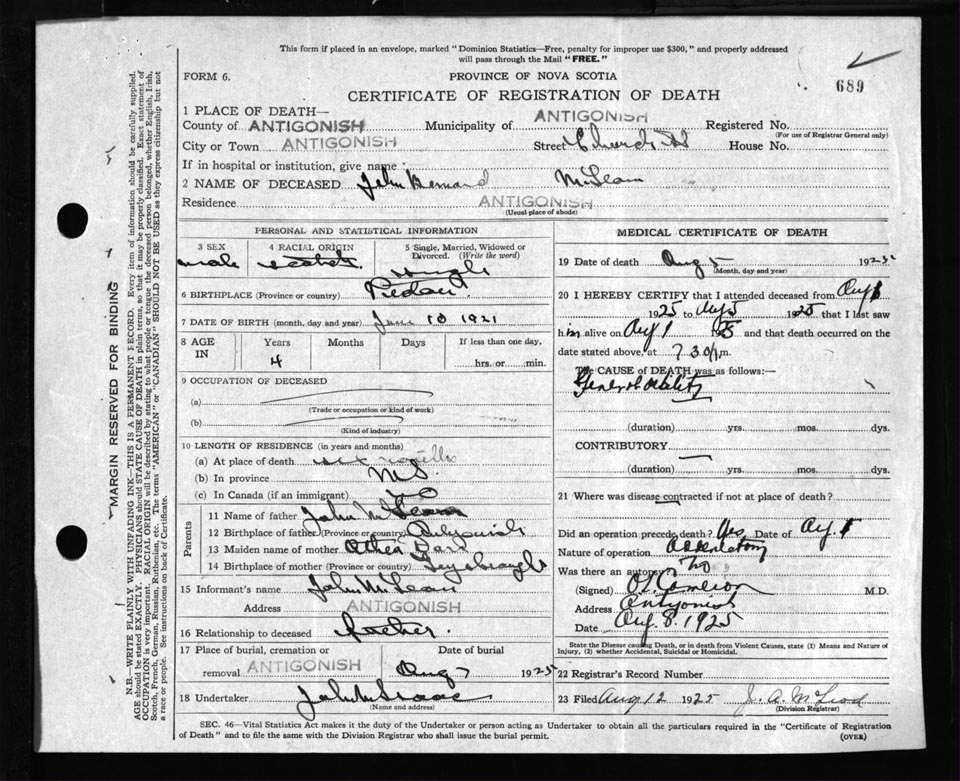 This form if placed in an envelope, marked "Dominion Statistics—Free, penalty for improper use $300," and properly addressed
will pass through the Mail "FREE."
689
FORM 6.
PROVINCE OF NOVA SCOTIA
CERTIFICATE OF REGISTRATION OF DEATH
1 PLACE OF DEATH—
County of ANTIGONISH Municipality of ANTIGONISH Registered No.
(For use of Registrar General only)
City or Town ANTIGONISH Street Church St House No.
If in hospital or institution, give name
2 NAME OF DECEASED John Bernard McLean
Residence ANTIGONISH
(Usual place of abode)
PERSONAL AND STATISTICAL INFORMATION
3 SEX 4 RACIAL ORIGIN 5 Single, Married, Widowed or Divorced. (Write the word)
male Scotch Single
6 BIRTHPLACE (Province or country) Pictou
7 DATE OF BIRTH (month, day and year) Jan 10 1921
8 AGE IN Years Months Days If less than one day,
4 hrs. or min.
9 OCCUPATION OF DECEASED
(a)
(Trade or occupation or kind of work)
(b)
(Kind of industry)
10 LENGTH OF RESIDENCE (in years and months)
(a) At place of death six months
(b) In province NS
(c) In Canada (if an immigrant)
Parents
11 Name of father John McLean
12 Birthplace of father (Province or country) Antigonish
13 Maiden name of mother
14 Birthplace of mother (Province or country) Guysborough
15 Informant's name John McLean
Address ANTIGONISH
16 Relationship to deceased father.
17 Place of burial, cremation or removal Date of burial
ANTIGONISH Aug 7 1925
18 Undertaker
(Name and address)
MEDICAL CERTIFICATE OF DEATH
19 Date of death Aug 5 1925
(Month, day and year)
20 I HEREBY CERTIFY that I attended deceased from Aug 1
1925 to Aug 5 1925 that I last saw
him alive on Aug 1 1925 and that death occurred on
date stated above, at 7 30 m.
The CAUSE of DEATH was as follows:—
General debility
(duration) yrs. mos. dys.
CONTRIBUTORY
(duration) yrs. mos. dys.
21 Where was disease contracted if not at place of death?
Did an operation precede death? Yes Date of Aug. 1
Nature of operation
Was there an autopsy? No
(Signed) Cameron M.D.
Address Antigonish
Date Aug. 8. 1925
State the Disease causing Death, or in death from Violent Causes, state (1) Means and Nature of
Injury, (2) whether Accidental, Suicidal or Homicidal.
22 Registrar's Record Number
23 Filed Aug 12 1925 J. A. McLeod
(Division Registrar)
SEC. 46—Vital Statistics Act makes it the duty of the Undertaker or person acting as Undertaker to obtain all the particulars required in the "Certificate of Registration
of Death" and to file the same with the Division Registrar who shall issue the burial permit.
(OVER)
MARGIN RESERVED FOR BINDING
N.B.—WRITE PLAINLY WITH UNFADING INK—THIS IS A PERMANENT RECORD. Every item of information should be carefully supplied.
AGE should be stated EXACTLY. PHYSICIANS should STATE CAUSE OF DEATH in plain terms, so that it may be properly classified. Exact statement of
OCCUPATION is very important. RACIAL ORIGIN will be described by stating to what people or tongue the deceased person belonged, whether English, Irish,
Scotch, French, German, Russian, Ruthenian, etc. The terms "AMERICAN" or "CANADIAN" SHOULD NOT BE USED as they express citizenship but not
a race or people. See instructions on back of Certificate.